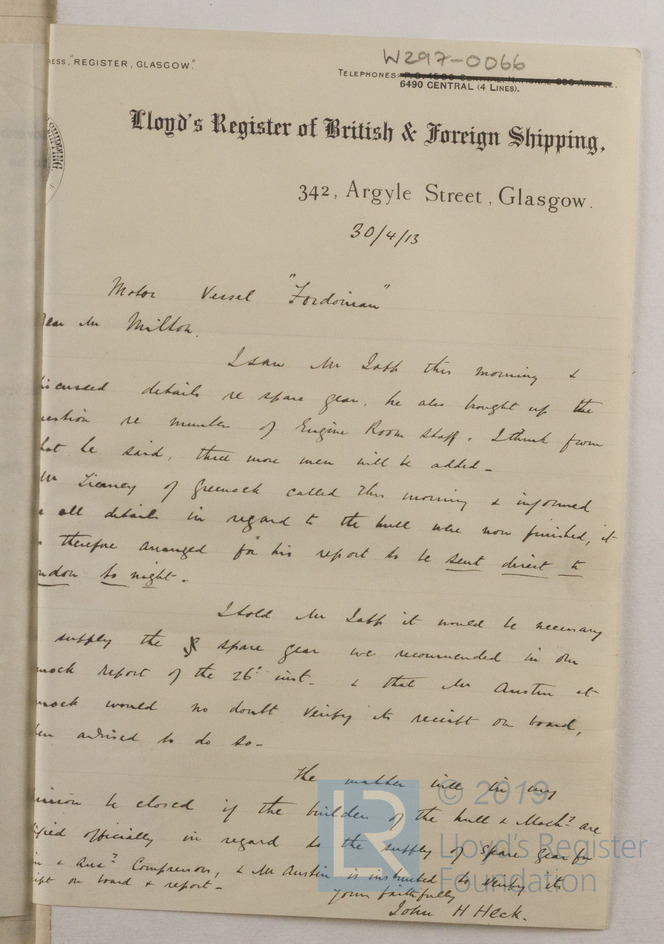 W297-0066
RESS, "REGISTER, GLASGOW."
TELEPHONES:
6490 CENTRAL (4 LINES).
Lloyd's Register of British & Foreign Shipping,
342, Argyle Street, Glasgow.
30/4/13
Motor Vessel "Fordonian"
ear Mr Milton.
I saw Mr this morning &
iscussed details re spare gear. he also brought up the
uestion re number of Engine Room staff. I think from
hat he said, three more men will be added -
Mr of Greenock called this morning & informed
all details in regard to the hull were now finished, it
therefore arranged for his report to be sent direct to
ondon to night -
I told Mr it would be necessary
supply the spare gear we recommended in our
nock report of the 26th inst. & that Mr Austin at
nock would no doubt verify its receipt on board,
hen advised to do so -
The matter will in my
inion be closed if the builders of the hull & Machy are
ified officially in regard to the supply of spare gear for
& Auxy Compressors, & Mr Austin is instructed to verify its
eipt on board & report -
yours faithfully
John H Heck.
LR
© 2019
Lloyd's Register
Foundation